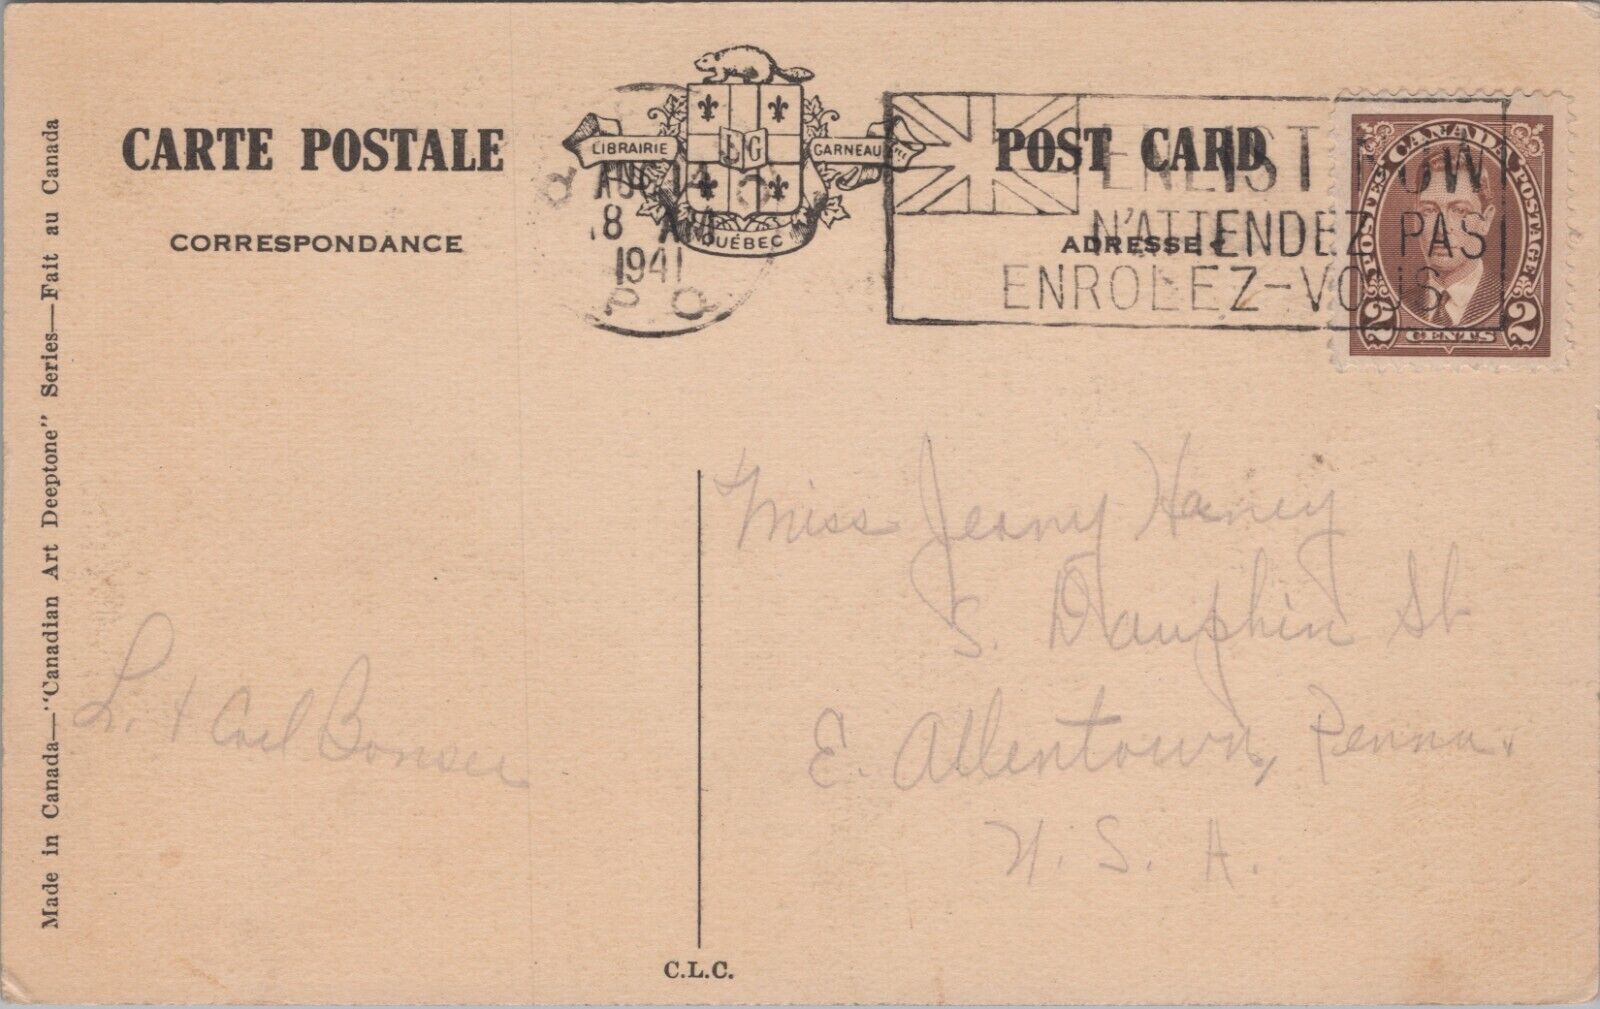 CARTE POSTALE
CORRESPONDANCE
LIBRAIRIE GARNEAU
LG
QUÉBEC
AU 14
8 AM
1941
P Q
POST CARD
ADRESSE
ENLIST NOW
N'ATTENDEZ PAS
ENROLEZ-VOUS
POSTES CANADA POSTAGE
2 CENTS 2
Made in Canada—"Canadian Art Deeptone" Series—Fait au Canada
L. + Carl Bonser
Miss Jeany Haney
S. Dauphin St
E. Allentown, Penna.
U. S. A.
C.L.C.